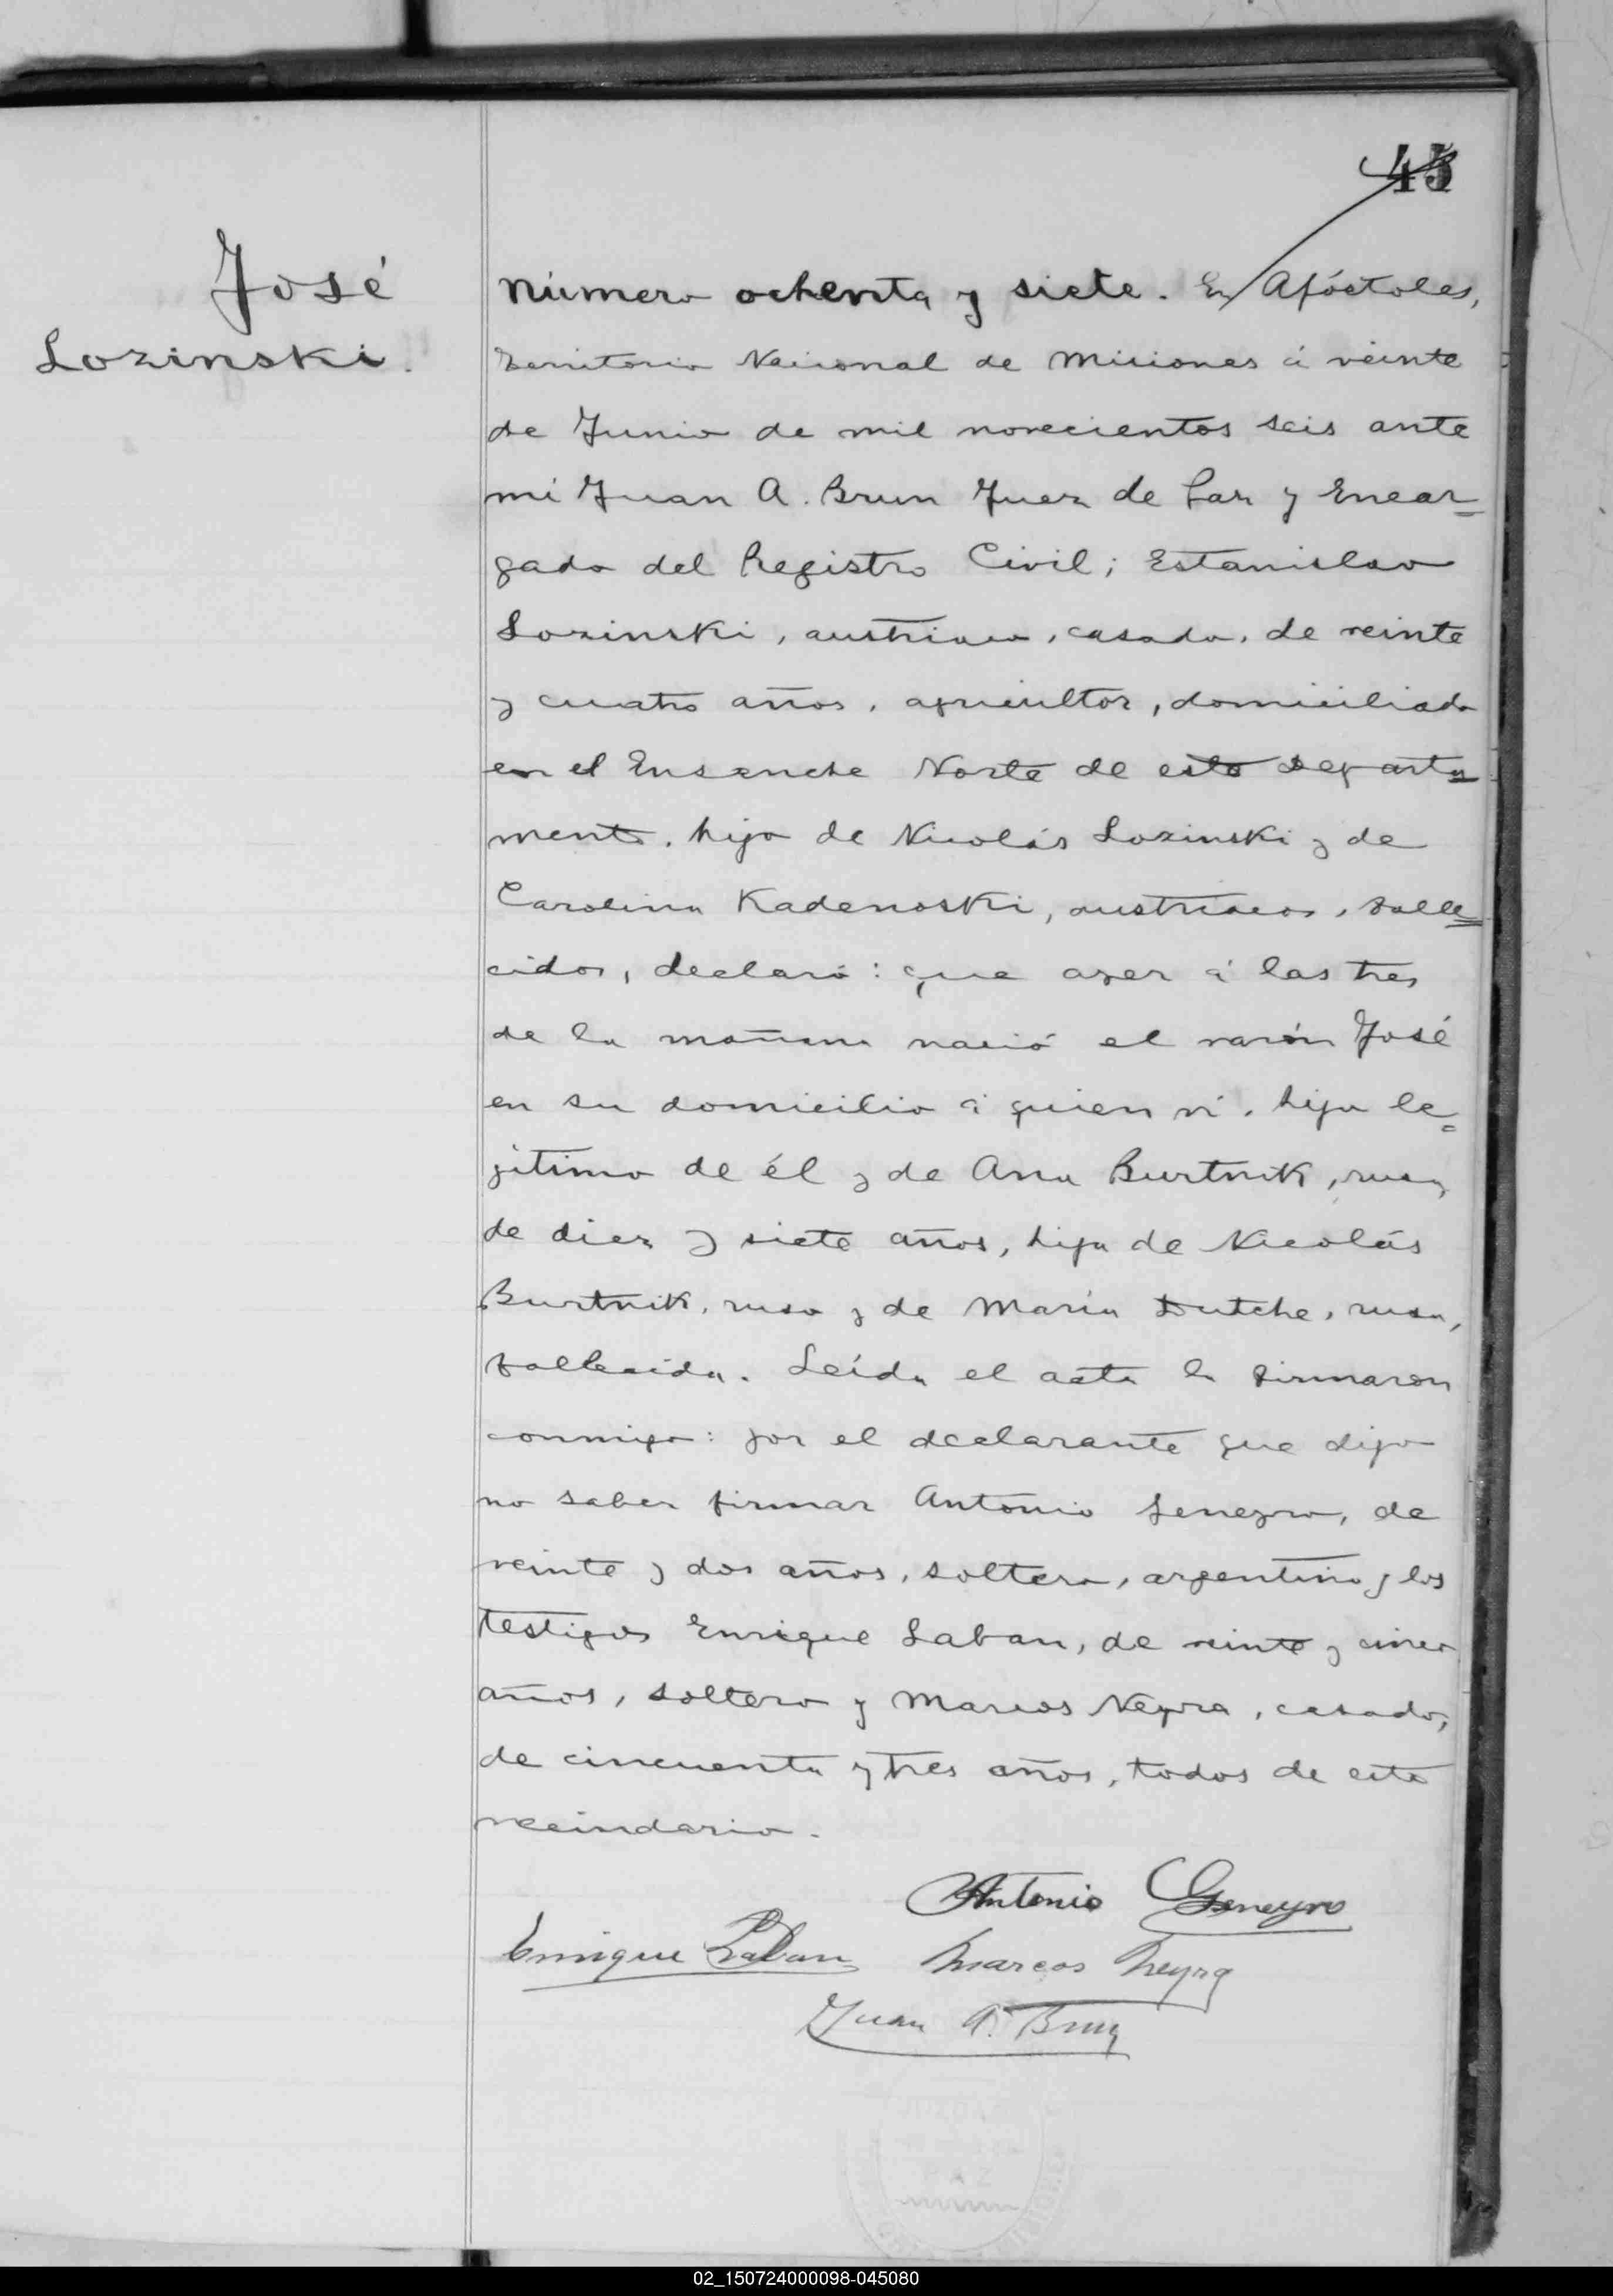 45
José
Lozinski.
Número ochenta y siete. En Apóstoles,
Territorio Nacional de Misiones á veinte
de Junio de mil novecientos seis ante
mi Juan A. Brun Juez de Paz y Encar-
gado del Registro Civil; Estanislao
Lozinski, austriaco, casado, de veinte
y cuatro años, agricultor, domiciliado
en el Ensanche Norte de este Departa-
mento, hijo de Nicolás Lozinski y de
Carolina Kadenoski, austriacos, falle-
cidos, declaró: que ayer á las tres
de la mañana nació el varón José
en su domicilio á quien ví, hijo le-
gítimo de él y de Ana Burtnik, rusa,
de diez y siete años, hija de Nicolás
Burtnik, ruso y de María Dutche, rusa,
fallecida. Leída el acta la firmaron
conmigo: por el declarante que dijo
no saber firmar Antonio Geneyro, de
veinte y dos años, soltero, argentino y los
testigos Enrique Laban, de veinte y cinco
años, soltero y Marcos Neyra, casado,
de cincuenta y tres años, todos de este
vecindario.
Antonio Geneyro
Enrique Laban Marcos Neyra
Juan A. Brun
02_150724000098-045080